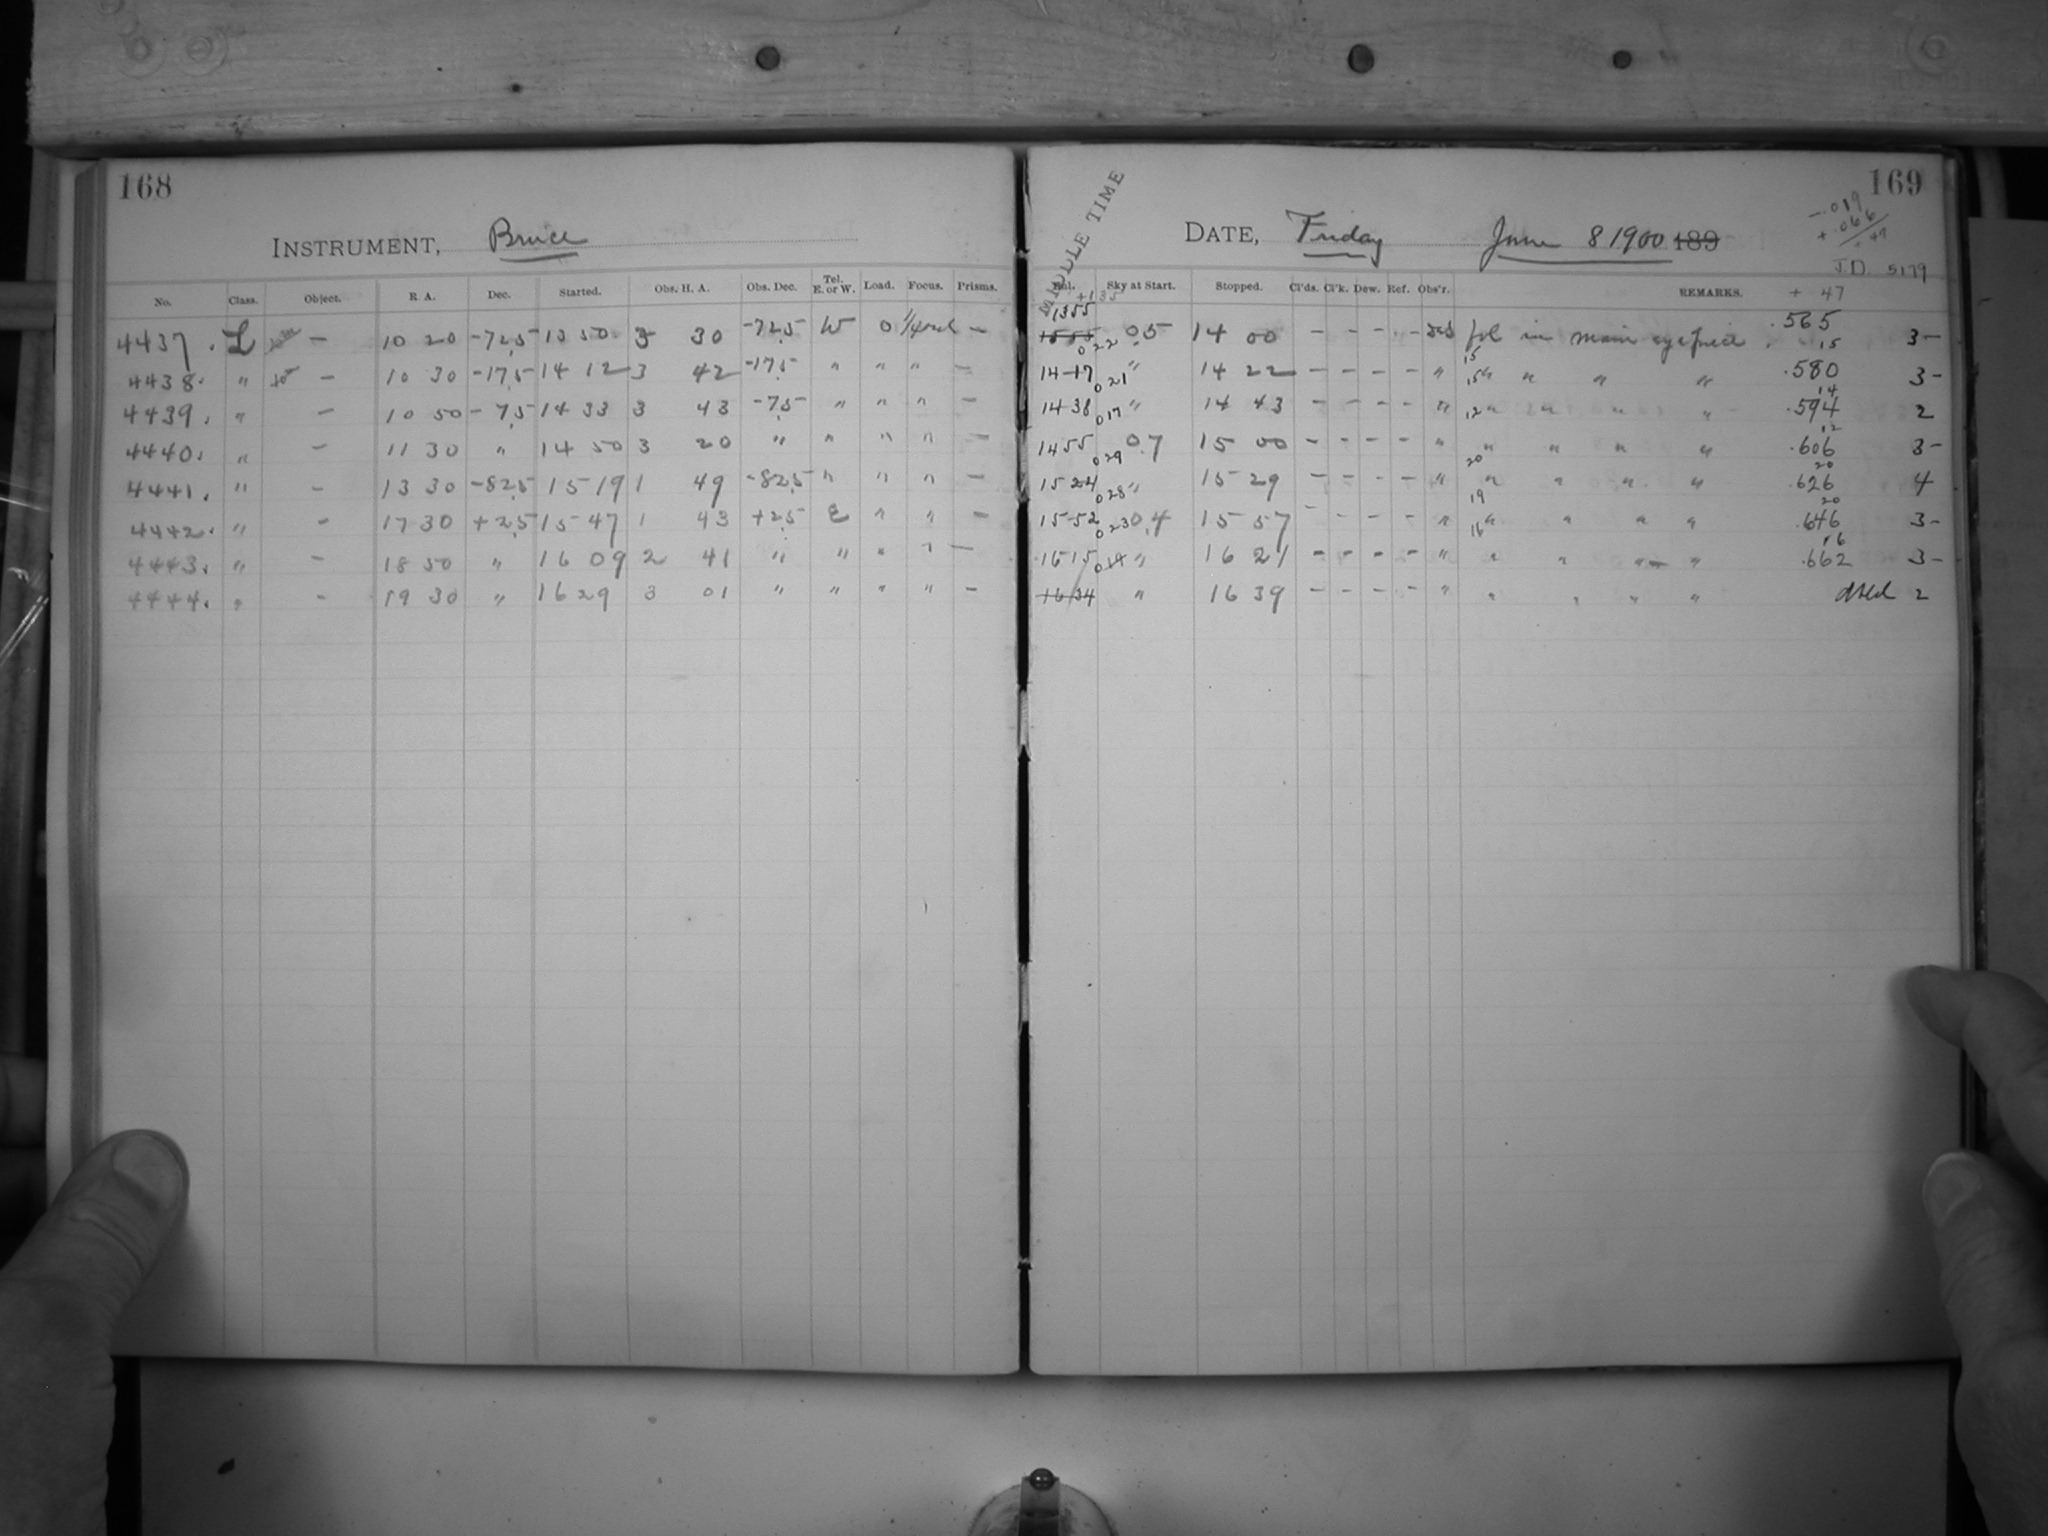 168
INSTRUMENT, Bruce
No. Class. Object. R. A. Dec. Started. Obs. H. A. Obs. Dec. Tel. E. or W. Load. Focus. Prisms.
4437. L — 10 20 -72.5 13 50 3 30 -72.5 W 0 —
4438. " — 10 30 -17.5 14 12 3 42 -17.5 " " " —
4439. " — 10 50 -7.5 14 33 3 43 -7.5 " " " —
4440. " — 11 30 " 14 50 3 20 " " " " —
4441. " - 13 30 -82.5 15 19 1 49 -82.5 " " " —
4442. " - 17 30 +2.5 15 47 1 43 +2.5 E " " —
4443. " - 18 50 " 16 09 2 41 " " " " —
4444. " - 19 30 " 16 29 3 01 " " " " —
169
MIDDLE TIME
DATE, Friday June 8 1900 189
-.019
+.066
+ 47
J.D. 5179
Sky at Start. Stopped. Cl'ds. Cl'k. Dew. Ref. Obs'r. REMARKS. + 47
1355 022 05 14 00 - - - - fol in main eyepiece. .565 3-
15 15
14 17 021 " 14 22 - - - - " 15 " " " " .580 3-
14
14 38 017 " 14 43 - - - - " 12 " " " " .594 2
12
14 55 029 0.7 15 00 - - - - " " " " " .606 3-
20 20
15 24 028 " 15 29 - - - - " " " " " .626 4
19 20
15 52 023 0.4 15 57 - - - - " 16 " " " " .646 3-
16
16 15 014 " 16 21 - - - - " " " " " .662 3-
16 34 " 16 39 - - - - " " " " " 2